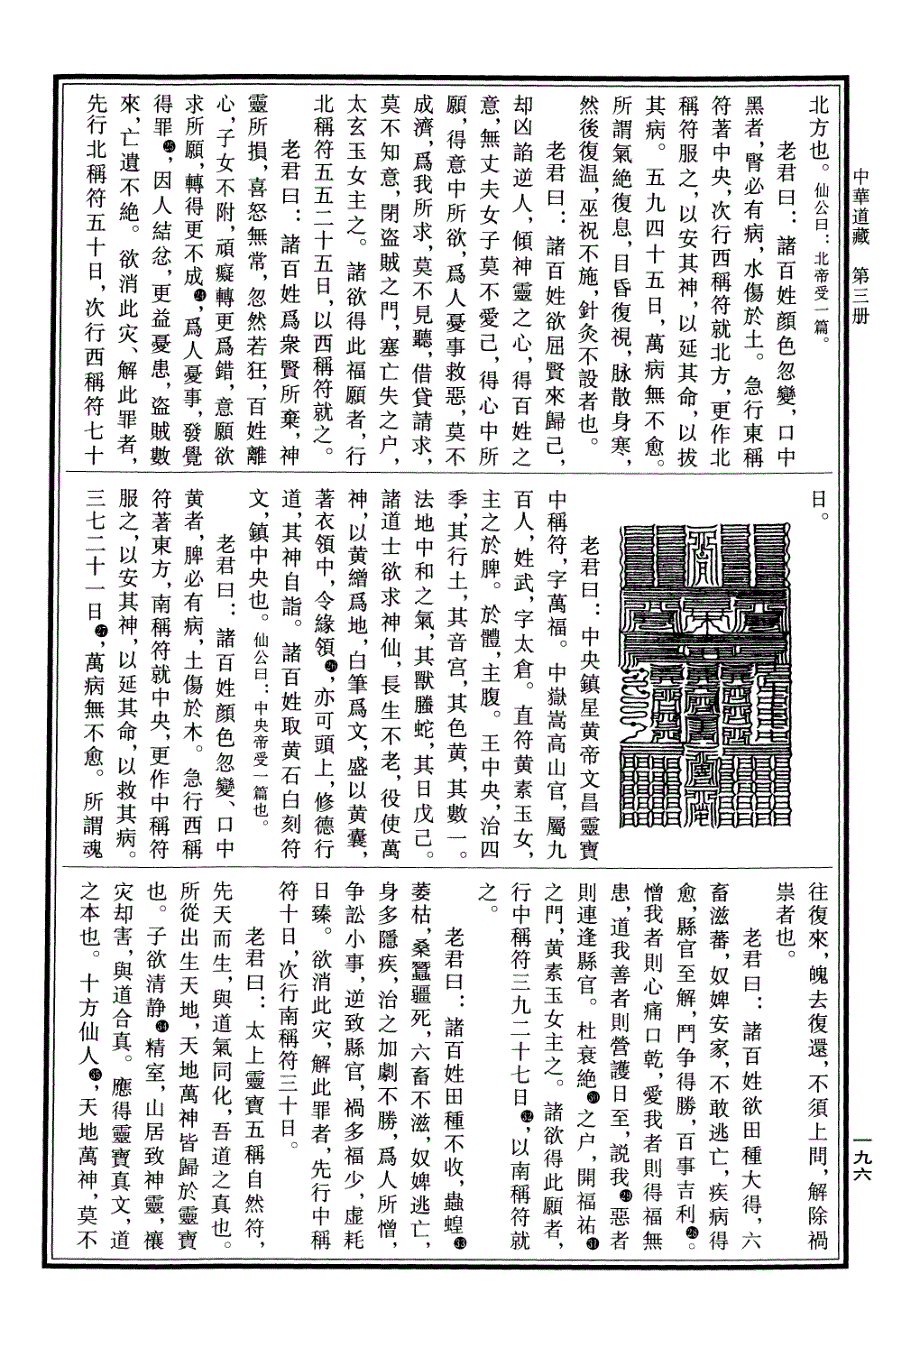 中華道藏　第三册
一九六
北方也。仙公曰：北帝受一篇。
老君曰：諸百姓顔色忽變，口中
黑者，腎必有病，水傷於土。急行東稱
符著中央，次行西稱符就北方，更作北
稱符服之，以安其神，以延其命，以拔
其病。五九四十五日，萬病無不愈。
所謂氣絶復息，目昏復視，脉散身寒，
然後復温，巫祝不施，針灸不設者也。
老君曰：諸百姓欲屈賢來歸己，
却凶諂逆人，傾神靈之心，得百姓之
意，無丈夫女子莫不愛己，得心中所
願，得意中所欲，爲人憂事救惡，莫不
成濟，爲我所求，莫不見聽，借貸請求，
莫不知意，閉盗賊之門，塞亡失之户，
太玄玉女主之。諸欲得此福願者，行
北稱符五五二十五日，以西稱符就之。
老君曰：諸百姓爲衆賢所棄，神
靈所損，喜怒無常，忽然若狂，百姓離
心，子女不附，頑癡轉更爲錯，意願欲
求所願，轉得更不成㉔，爲人憂事，發覺
得罪㉕，因人結忿，更益憂患，盗賊數
來，亡遺不絶。欲消此灾、解此罪者，
先行北稱符五十日，次行西稱符七十
日。
老君曰：中央鎮星黄帝文昌靈寶
中稱符，字萬福。中嶽嵩高山官，屬九
百人，姓武，字太倉。直符黄素玉女，
主之於脾。於體，主腹。王中央，治四
季，其行土，其音宫，其色黄，其數一。
法地中和之氣，其獸螣蛇，其日戊己。
諸道士欲求神仙，長生不老，役使萬
神，以黄繒爲地，白筆爲文，盛以黄囊，
著衣領中，令緣領㉖，亦可頭上，修德行
道，其神自詣。諸百姓取黄石白刻符
文，鎮中央也。仙公曰：中央帝受一篇也。
老君曰：諸百姓顔色忽變、口中
黄者，脾必有病，土傷於木。急行西稱
符著東方，南稱符就中央，更作中稱符
服之，以安其神，以延其命，以救其病。
三七二十一日㉗，萬病無不愈。所謂魂
往復來，魄去復還，不須上問，解除禍
祟者也。
老君曰：諸百姓欲田種大得，六
畜滋蕃，奴婢安家，不敢逃亡，疾病得
愈，縣官至解，鬥争得勝，百事吉利㉘。
憎我者則心痛口乾，愛我者則得福無
患，道我善者則營護日至，説我㉙惡者
則連逢縣官。杜衰絶㉚之户，開福祐㉛
之門，黄素玉女主之。諸欲得此願者，
行中稱符三九二十七日㉜，以南稱符就
之。
老君曰：諸百姓田種不收，蟲蝗㉝
萎枯，桑蠶彊死，六畜不滋，奴婢逃亡，
身多隱疾，治之加劇不勝，爲人所憎，
争訟小事，逆致縣官，禍多福少，虚耗
日臻。欲消此灾，解此罪者，先行中稱
符十日，次行南稱符三十日。
老君曰：太上靈寶五稱自然符，
先天而生，與道氣同化，吾道之真也。
所從出生天地，天地萬神皆歸於靈寶
也。子欲清静㉞精室，山居致神靈，禳
灾却害，與道合真。應得靈寶真文，道
之本也。十方仙人㉟，天地萬神，莫不